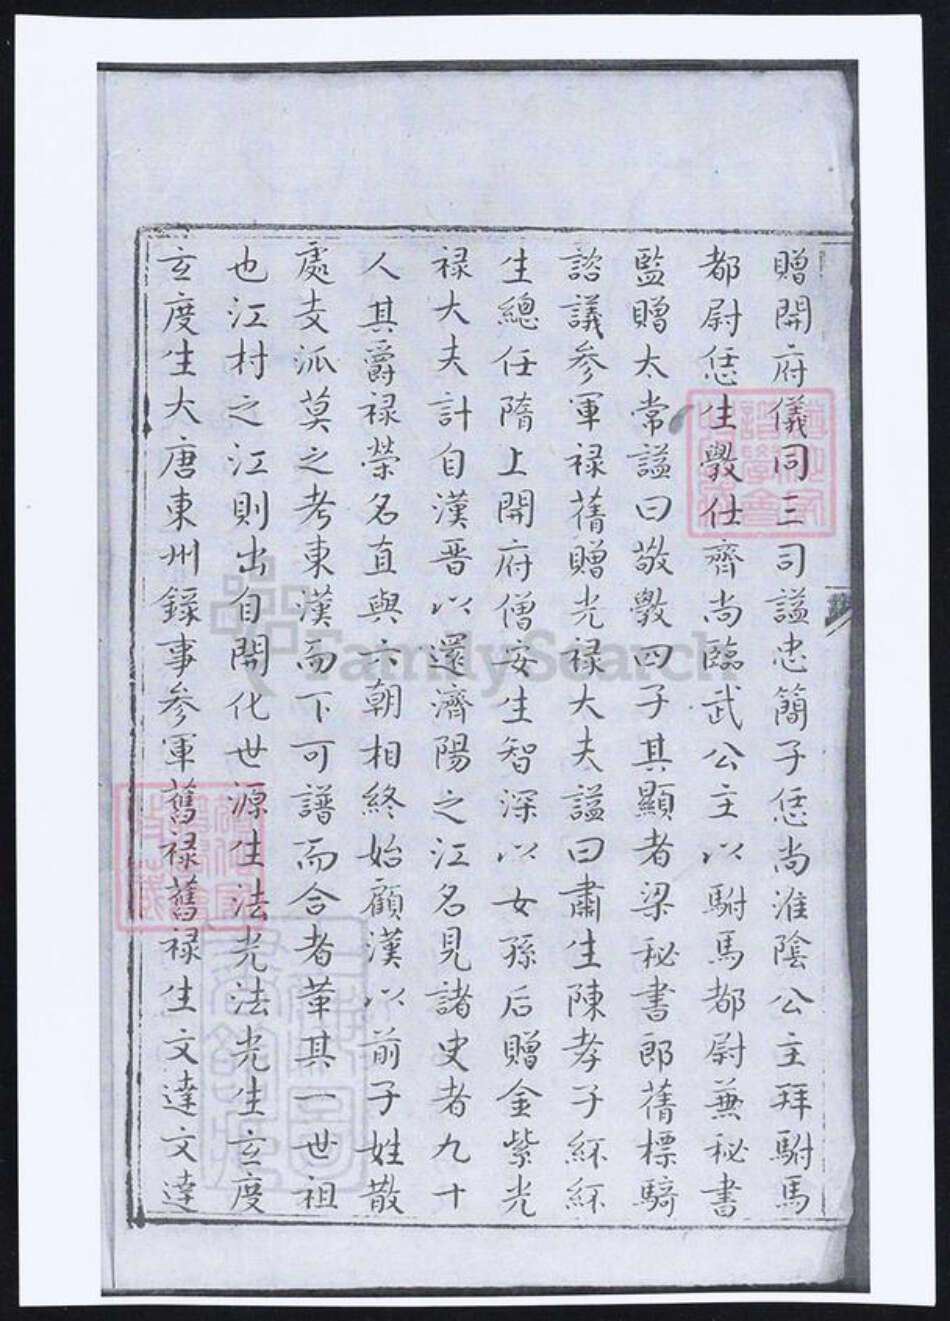 贈開府儀同三司謚忠簡子恁尚淮陰公主拜駙馬
都尉恁生斆仕齊尚臨武公主以駙馬都尉兼秘書
監贈太常謚曰敬斆四子其顯者梁秘書郎蒨標騎
諮議參軍祿蒨贈光祿大夫謚曰肅生陳孝子紑紑
生總任隋上開府僧安生智深以女孫后贈金紫光
祿大夫計自漢晋以還濟陽之江名見諸史者九十
人其爵祿榮名直與六朝相終始顧漢以前子姓散
處支派莫之考東漢而下可譜而合者革其一世祖
也江村之江則出自開化世源生法光法光生玄度
玄度生大唐東州錄事參軍舊祿舊祿生文達文達
FamilySearch